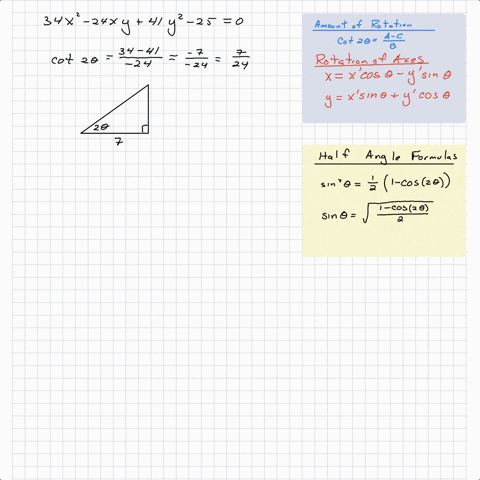 34x² - 24xy + 41y² - 25 = 0
cot 2θ = \frac{34-41}{-24} = \frac{-7}{-24} = \frac{7}{24}
2θ
7
Amount of Rotation
Cot 2θ = \frac{A-C}{B}
Rotation of Axes
x = x'cos θ - y'sin θ
y = x'sin θ + y'cos θ
Half Angle Formulas
sin²θ = \frac{1}{2} (1-cos(2θ))
sin θ = \sqrt{\frac{1-cos(2θ)}{2}}